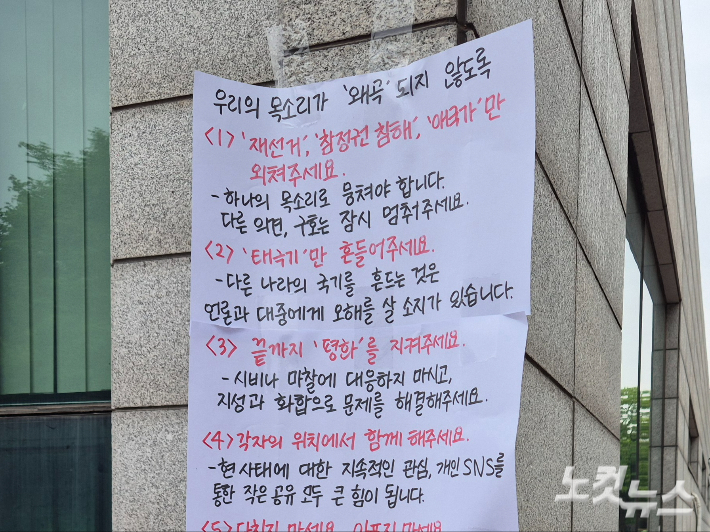 우리의 목소리가 '왜곡'되지 않도록
<1> '재선거', '참정권 침해', '애국가'만
외쳐주세요.
- 하나의 목소리로 뭉쳐야 합니다.
다른 의견, 구호는 잠시 멈춰주세요.
<2> '태극기'만 흔들어주세요.
- 다른 나라의 국기를 흔드는 것은
언론과 대중에게 오해를 살 소지가 있습니다.
<3> 끝까지 '평화'를 지켜주세요.
- 시비나 마찰에 대응하지 마시고,
지성과 화합으로 문제를 해결해주세요.
<4> 각자의 위치에서 함께 해주세요.
- 현 사태에 대한 지속적인 관심, 개인 SNS를
통한 작은 공유 모두 큰 힘이 됩니다.
<5> 다치지 마세요. 아프지 마세요
노컷뉴스